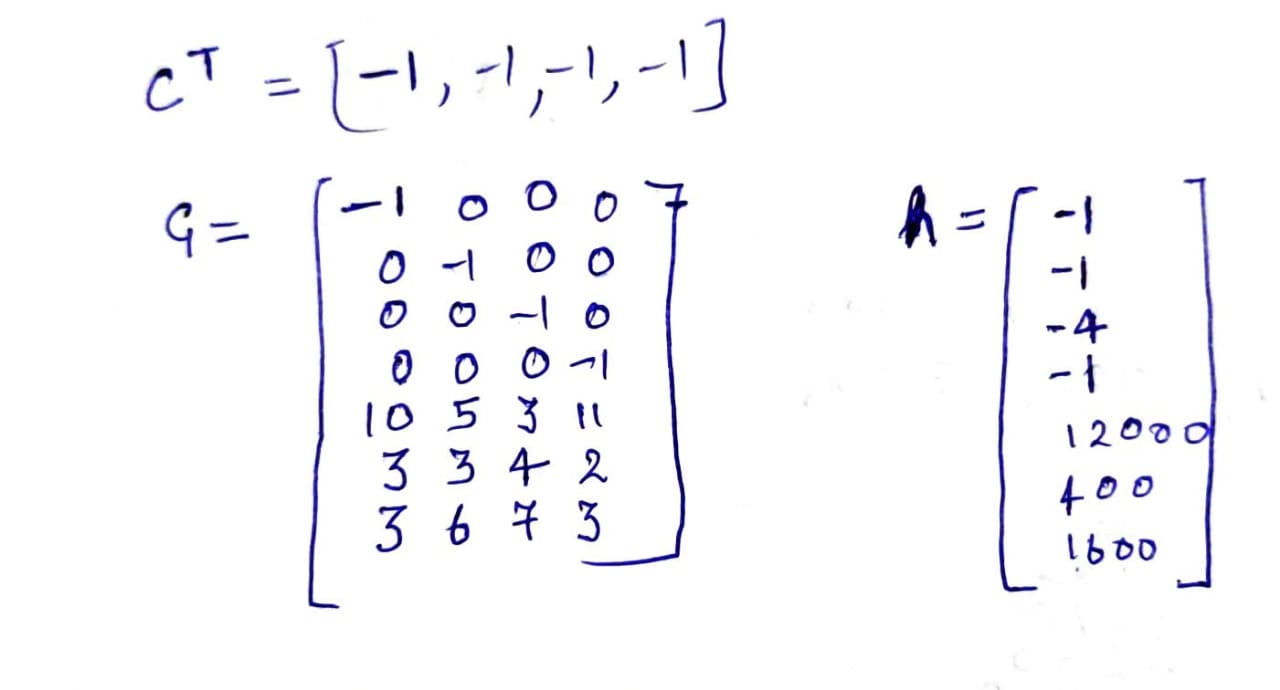 C^T = [-1, -1, -1, -1]
G = [-1 0 0 0
0 -1 0 0
0 0 -1 0
0 0 0 -1
10 5 3 11
3 3 4 2
3 6 7 3]
h = [-1
-1
-4
-1
12000
400
1600]